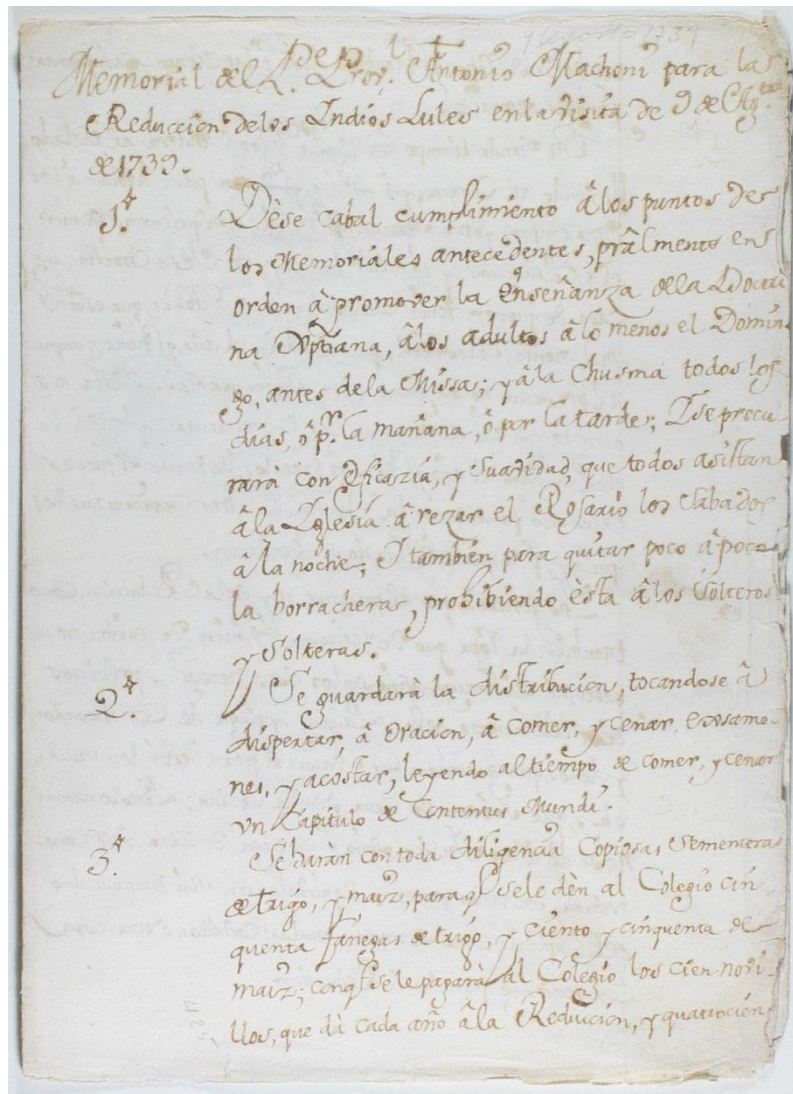 9 Agosto 1739
Memorial del P.e Prov.l Antonio Machoni para la
Reduccion de los Indios Lules en la visita de 9 de Ag.to
de 1739.
1.o Dèse cabal cumplimiento â los puntos de
los Memoriales antecedentes, prâlmente en
orden â promover la enseñanza de la Doctri
na Xptiana, â los adultos â lo menos el Domin
go, antes de la Missa; y â la Chusma todos los
dias, ô p.r la mañana, ô por la tarde; I se procu
rarà con eficazia, y suavidad, que todos asistan
â la Iglesia â rezar el Rosario los Sabados
â la noche; I tambien para quitar poco â poco
la borracheras, prohibiendo èsta â los Solteros
y Solteras.
2.o Se guardarà la distribucion, tocandose â
dispertar, â Oracion, â comer, y cenar, Exsamo
nes, y acostar, leyendo al tiempo de comer, y cenar
vn Capitulo de Contentus Mundi.
3.o Se haràn con toda diligencia Copiosas Sementeras
de trigo, y maiz, para q se le dèn al Colegio cin
quenta fanegas de trigo, y ciento y cinquenta de
maiz; conq se le pagarà al Colegio los cien novi
llos, que dà cada año â la Reducion, y quatrocien